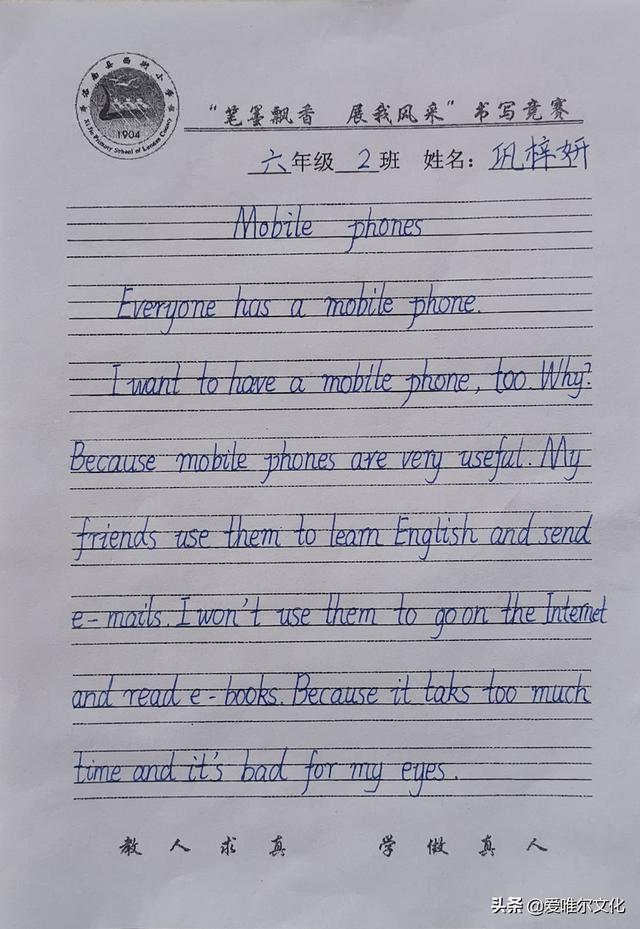 洛南县西街小学
1904
Xi Jie Primary School of Luonan County
“笔墨飘香 展我风采”书写竞赛
六年级 2 班 姓名：巩梓妍
Mobile phones
Everyone has a mobile phone.
I want to have a mobile phone, too Why?
Because mobile phones are very useful. My
friends use them to learn English and send
e-mails. I won't use them to go on the Internet
and read e-books. Because it taks too much
time and it's bad for my eyes.
教人求真 学做真人
头条 @爱唯尔文化